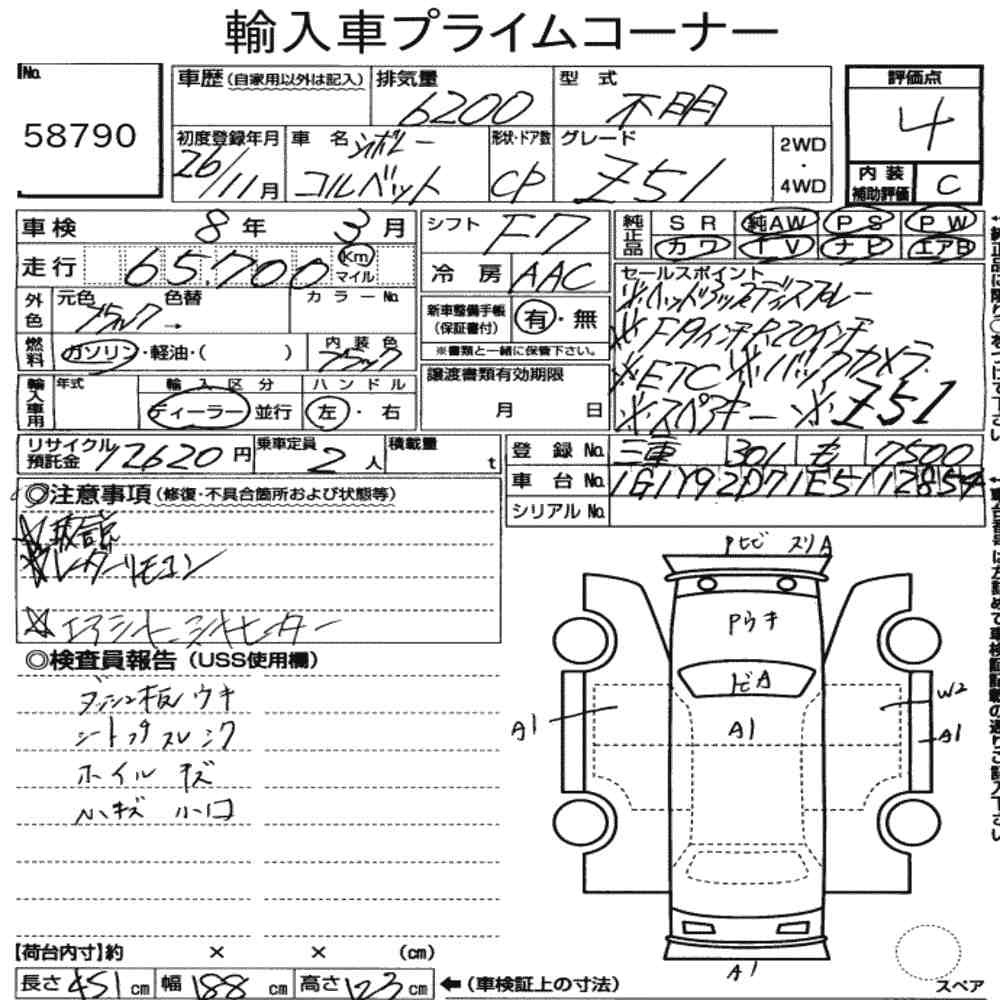 輸入車プライムコーナー
No.
58790
車歴(自家用以外は記入)
排気量
6200
型 式
不明
評価点
4
初度登録年月
26/11月
車 名
シボレー
コルベット
形状・ドア数
CP
グレード
Z51
2WD
・
4WD
内装
補助評価
C
車検 8年 3月
シフト F7
純正品
SR 純AW PS PW
カワ TV ナビ エアB
走行 65,700 Km マイル
冷房 AAC
セールスポイント
※ヘッドアップディスプレー
※F19インチR20インチ
※ETC ※バックカメラ
※スペアキー ※Z51
外色
元色 ブラック→
色替
カラーNo.
新車整備手帳
(保証書付)
有・無
※書類と一緒に保管下さい。
燃料
ガソリン・軽油・( )
内装色
ブラック
輸入車用
年式
輸入区分
ディーラー 並行
ハンドル
左・右
譲渡書類有効期限
月 日
リサイクル
預託金
12620円
乗車定員
2人
積載量
t
登録No. 三重 301 も 7500
車台No. 1G1Y92D71E5112854
シリアルNo.
◎注意事項(修復・不具合箇所および状態等)
レーダーリモコン
エアシート・シートヒーター
◎検査員報告(USS使用欄)
ダッシュ板ウキ
シートスレ シワ
ホイル キズ
ハンキズ
PヒビスリA
Pウキ
ヒビA
A1
A1
W2
A1
A1
スペア
【荷台内寸】約 × × (cm)
長さ 451cm 幅 188cm 高さ 123cm ←(車検証上の寸法)